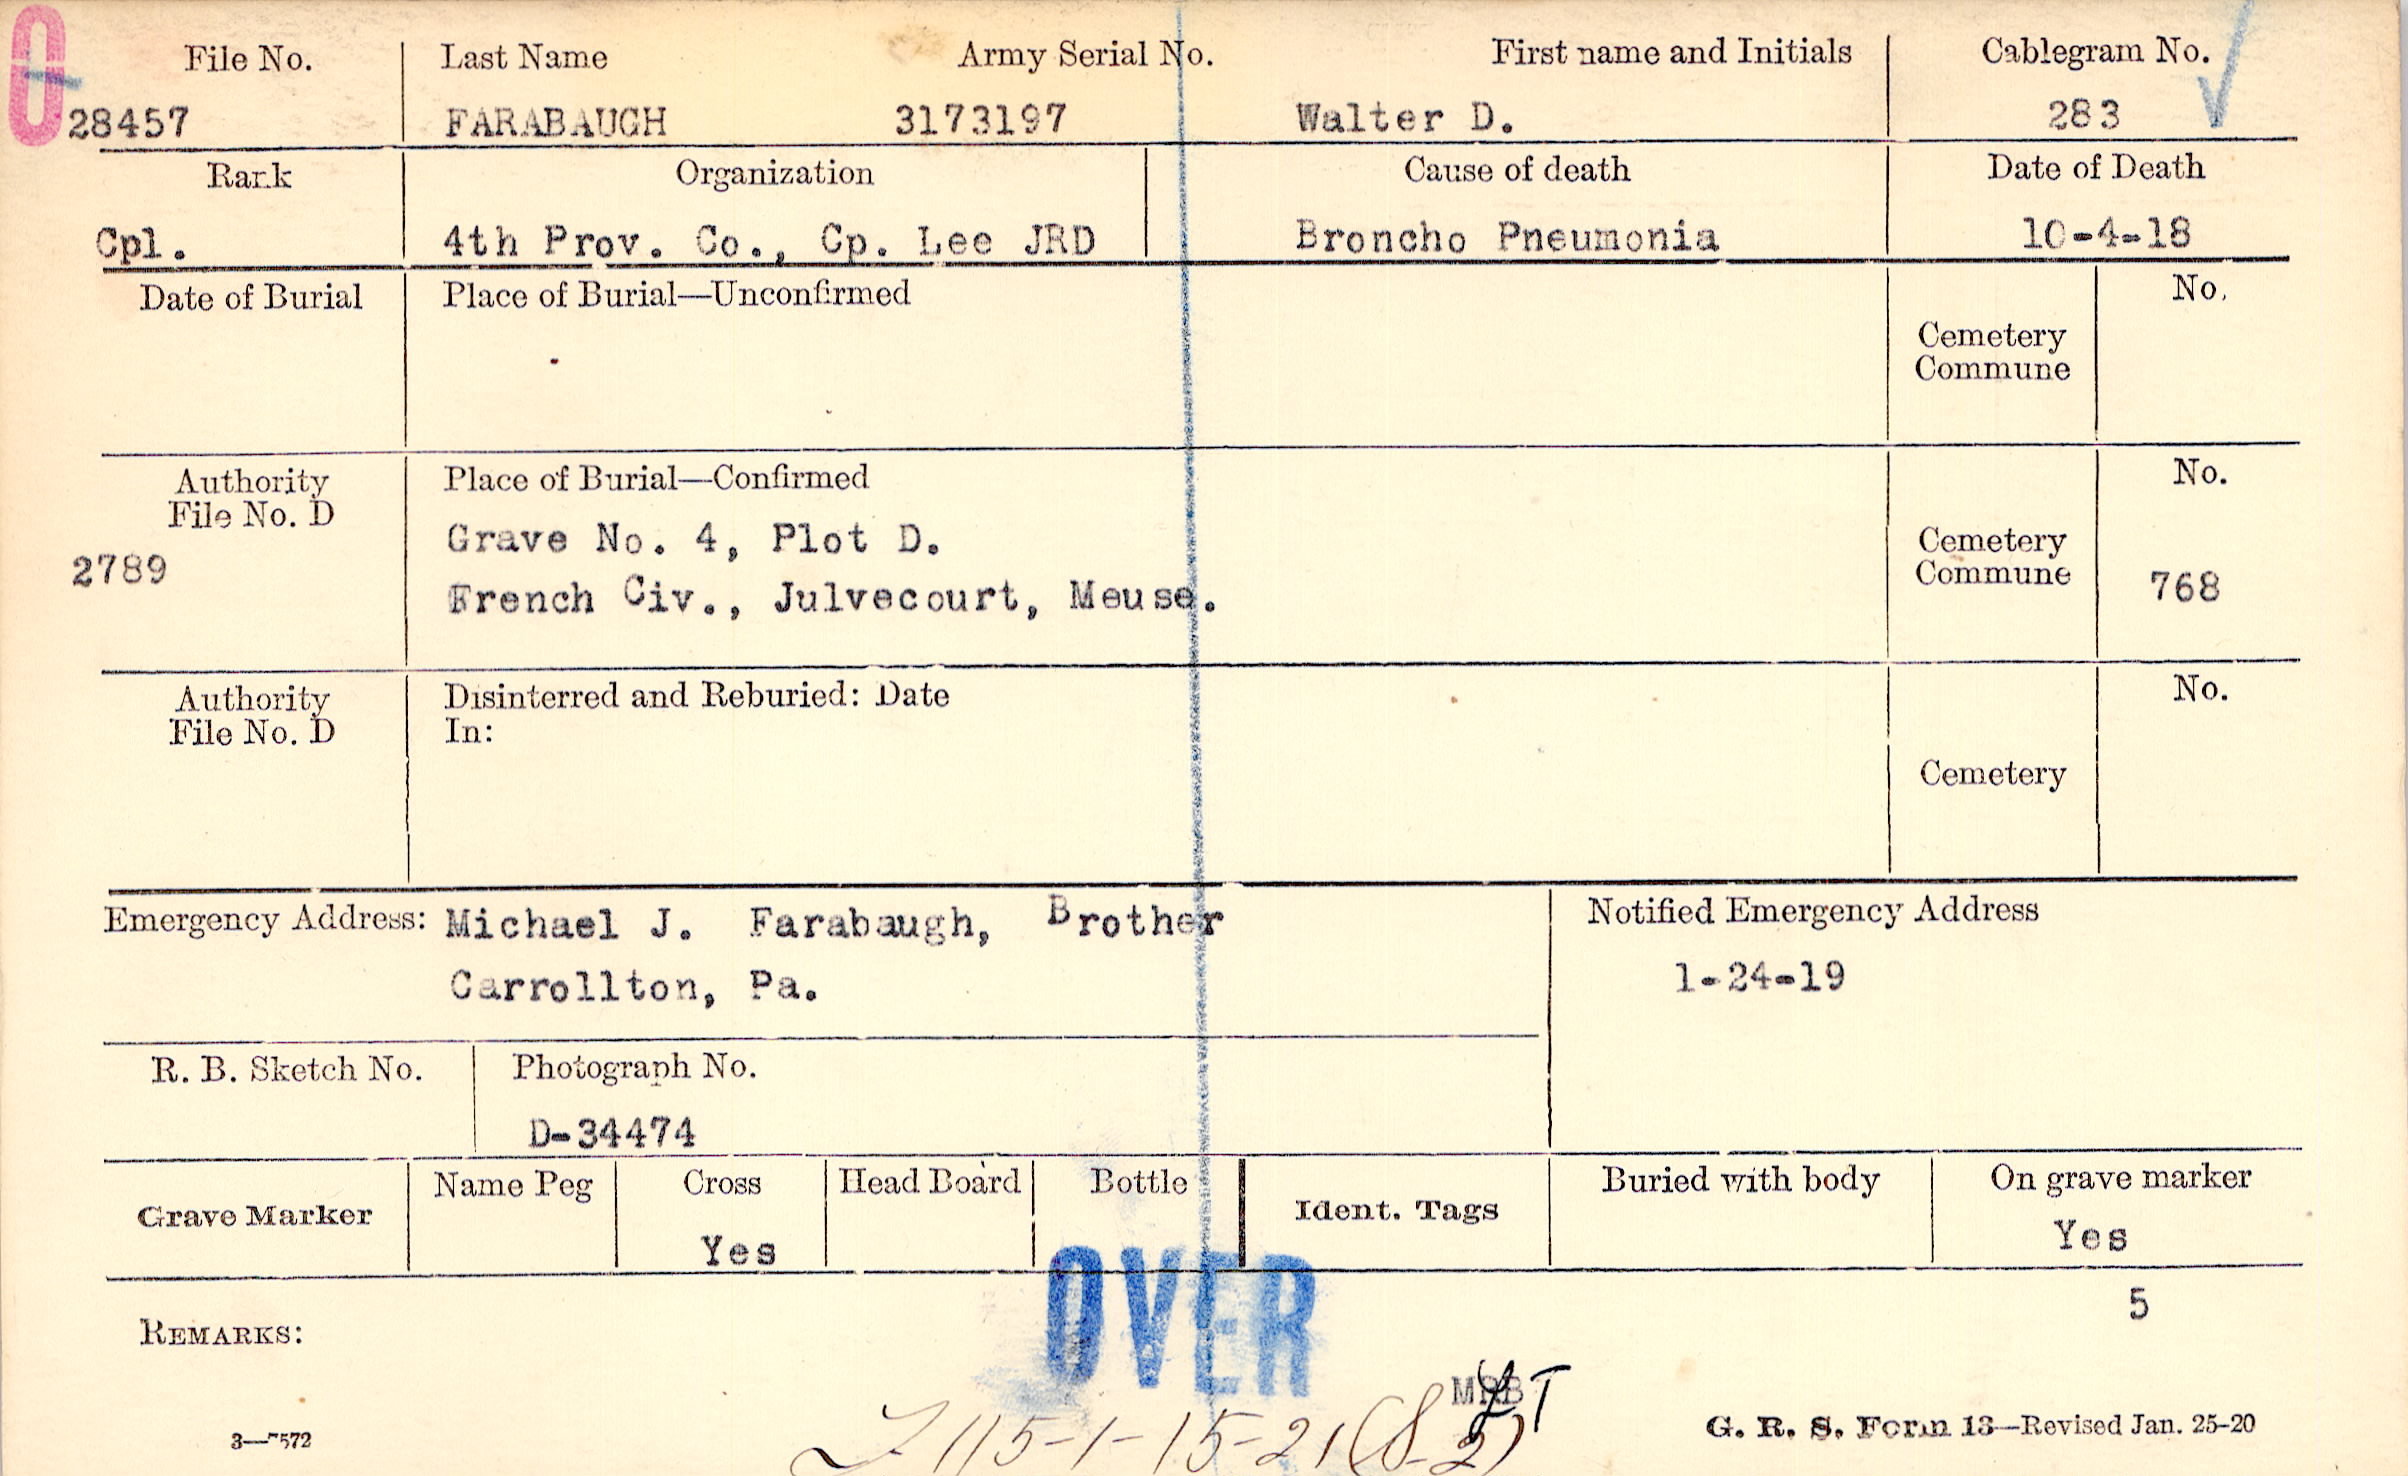 File No. Last Name Army Serial No. First name and Initials Cablegram No.
28457 FARABAUGH 3173197 Walter D. 283
Rank Organization Cause of death Date of Death
Cpl. 4th Prov. Co., Cp. Lee JRD Broncho Pneumonia 10-4-18
Date of Burial Place of Burial—Unconfirmed No.
Cemetery
Commune
Authority Place of Burial—Confirmed No.
File No. D
Grave No. 4, Plot D. Cemetery
2789 Commune 768
French Civ., Julvecourt, Meuse.
Authority Disinterred and Reburied: Date No.
File No. D In:
Cemetery
Emergency Address: Michael J. Farabaugh, Brother Notified Emergency Address
Carrollton, Pa. 1-24-19
R. B. Sketch No. Photograph No.
D-34474
Grave Marker Name Peg Cross Head Board Bottle Ident. Tags Buried with body On grave marker
Yes Yes
OVER
5
REMARKS:
3—7572 115-1-15-21 G. R. S. Form 13—Revised Jan. 25-20